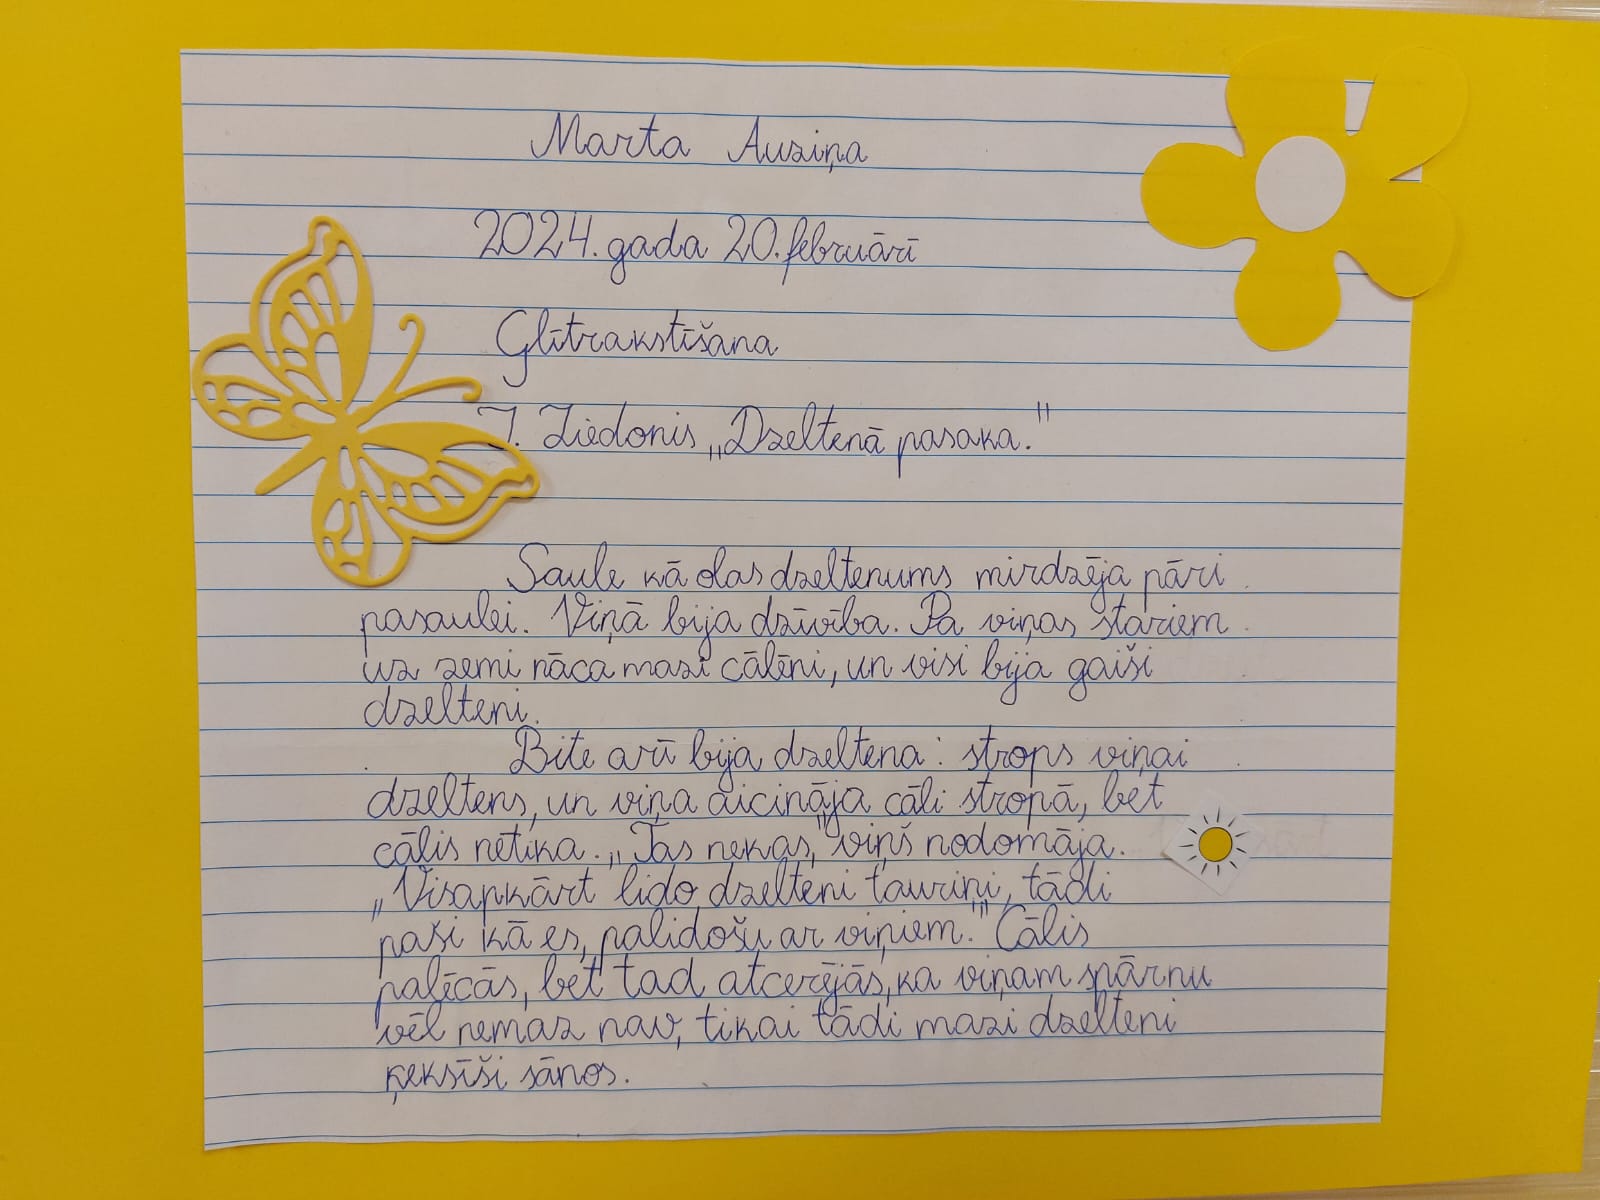 Marta Auziņa
2024. gada 20. februārī
Glītrakstīšana
I. Ziedonis „Dzeltenā pasaka."
Saule kā olas dzeltenums mirdzēja pāri
pasaulei. Viņā bija dzīvība. Pa viņas stariem
uz zemi nāca mazi cālēni, un visi bija gaiši
dzelteni.
Bite arī bija dzeltena: strops viņai
dzeltens, un viņa aicināja cāli stropā, bet
cālis netika. „Tas nekas," viņš nodomāja.
„Visapkārt lido dzelteni tauriņi, tādi
paši kā es, palidošu ar viņiem." Cālis
palēcās, bet tad atcerējās, ka viņam spārnu
vēl nemaz nav, tikai tādi mazi dzelteni
ķeksīši sānos.